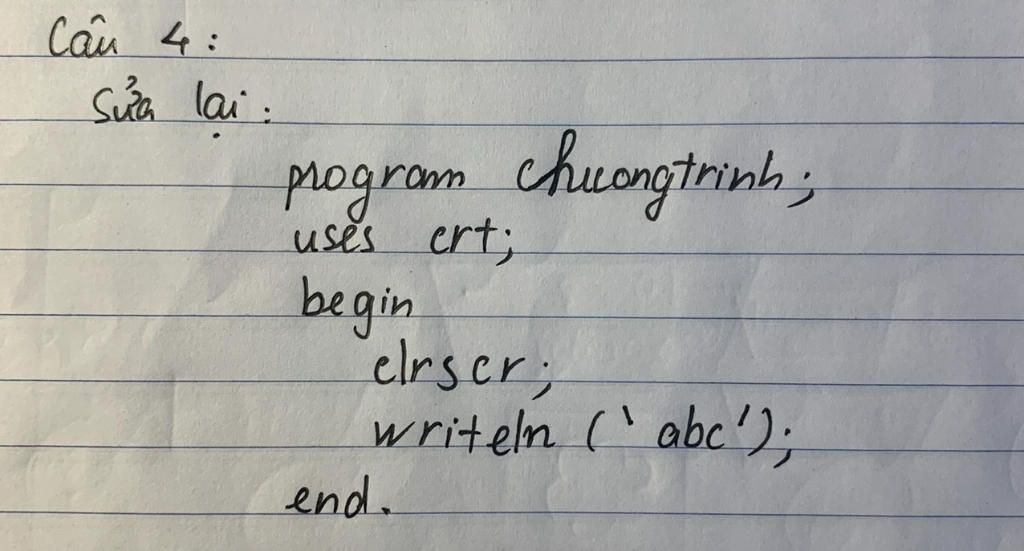 Câu 4:
Sửa lại:
program chuongtrinh;
uses crt;
begin
clrscr;
writeln (‘abc’);
end.